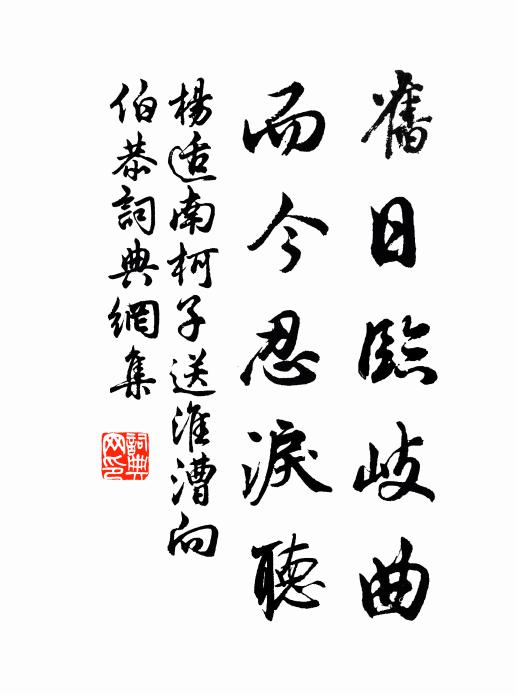 舊日臨岐曲
而今忍淚聽
楊适南柯子送淮漕向
伯恭詞典網集
詞典网印